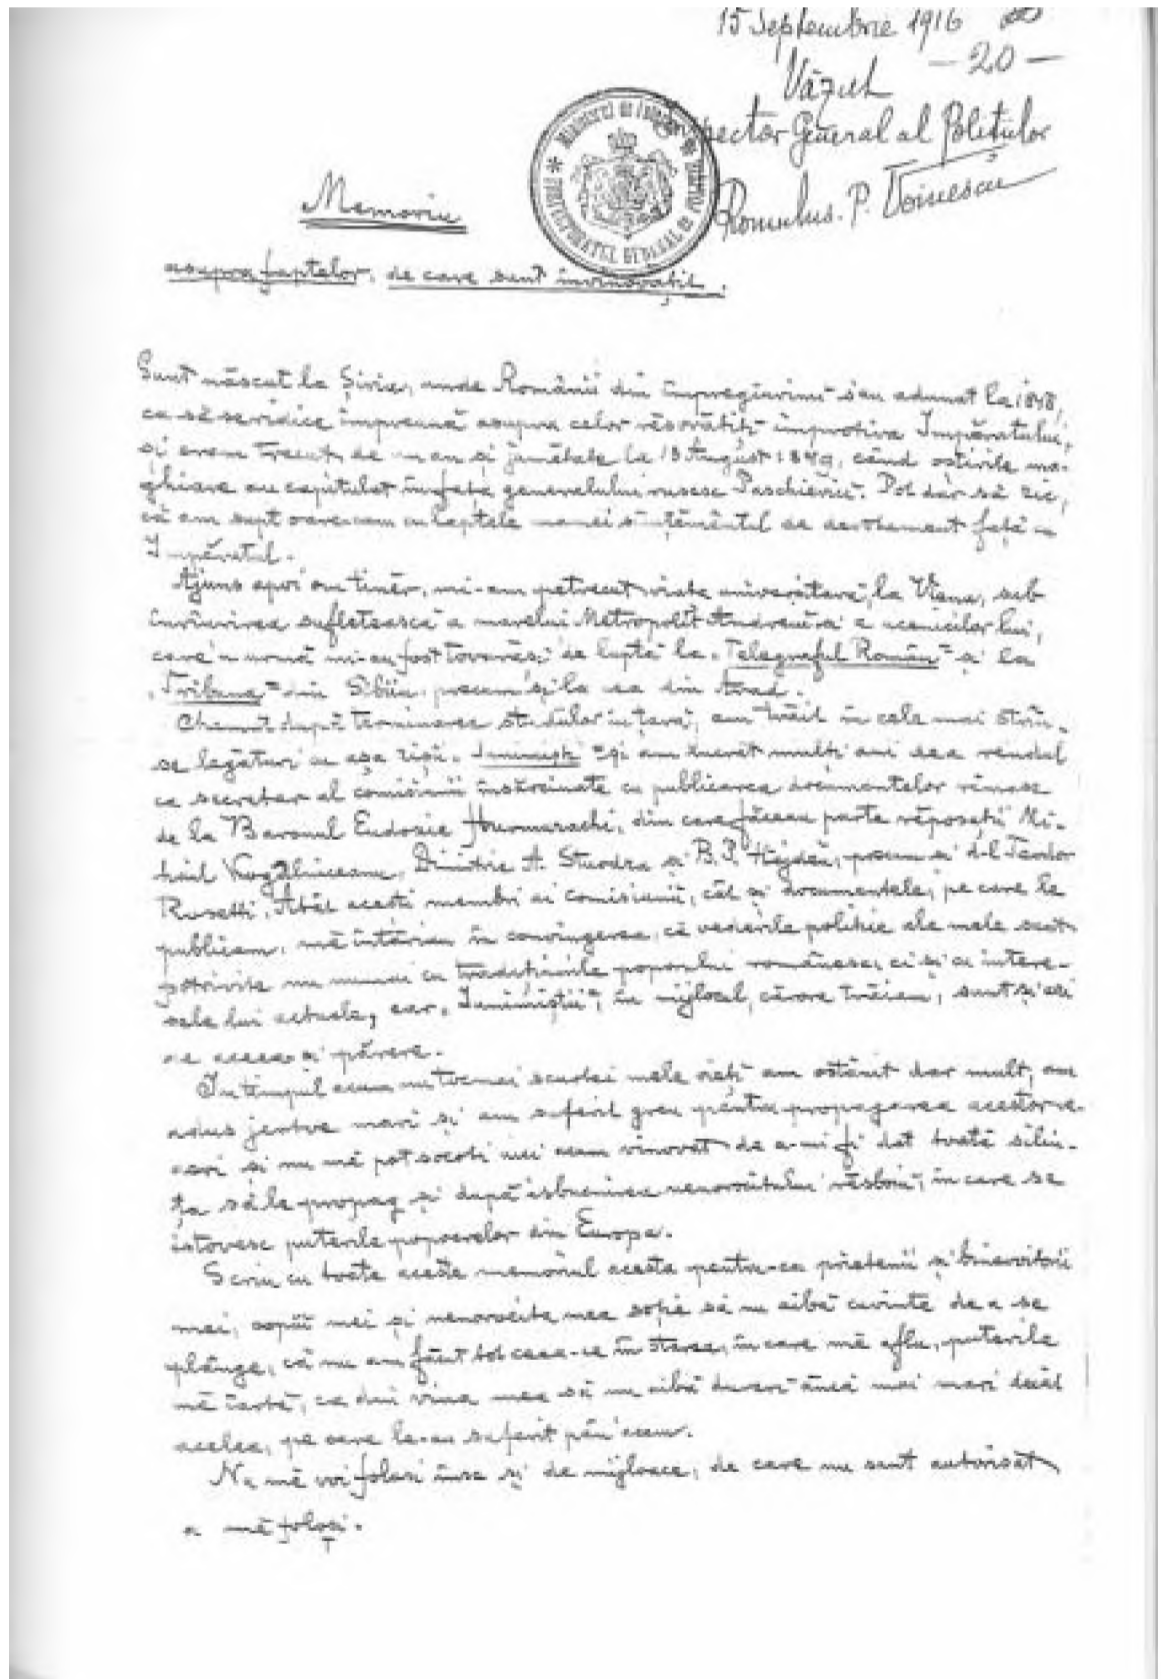 15 Septembrie 1916
— 20 —
Văzut
Inspector General al Polițiilor
Romulus. P. Voinescu
Memoriu
asupra faptelor, de care sunt învinovățit.
Sunt născut la Șiria, unde Românii din împregiurimĭ s'au adunat la 1848,
ca să se ridice împreună asupra celor rĕsvrătițĭ împrotiva Împăratului,
și eram trecut de un an și jumĕtate la 13 August 1849, când oștirile ma-
ghiare au capitulat în fața generalului rusesc Paschievicĭ. Pot dar să zic,
că am supt oare-cum cu laptele mamei sîmțĕmĕntul de devotament față cu
Împĕratul.
Ajuns apoi om tinĕr, mi-am petrecut viața universitară la Viena, sub
înrîurirea sufletească a marelui Metropolit Andreiŭ și a ucenicilor lui,
care 'n urmă mi-au fost tovarăși de luptă la „Telegraful Român" și la
„Tribuna" din Sibiiu, precum și la cea din Arad.
Chemat după terminarea studiilor în țară, am trăit în cele mai strîn-
se legături cu așa zișii „Junimiști" și am lucrat mulți ani d'a rendul
ca secretar al comisiunii însărcinate cu publicarea documentelor rĕmase
de la Baronul Eudosie Hourmuzachi, din care făceau parte rĕposații Mi-
hail Kogălniceanu, Dimitrie A. Sturdza și B. P. Hăjdĕŭ, precum și d-l Teodor
Rosetti. Atât acești membri ai comisiunii, cât și documentele, pe care le
publicam, mĕ întăriau în convingerea, că vederile politice ale mele sunt
potrivite nu numai cu tradițiunile poporului românesc, ci și cu intere-
sele lui actuale, ear „Junimiștii", în mijlocul cărora trăiam, sunt și azi
de aceea și părere.
În timpul acum nu tocmai scurtei mele vieți am ostănit dar mult, am
adus jertve mari și am suferit greu pentru propagarea acestor ve-
deri și nu mĕ pot socoti nici acum vinovat de a-mi fi dat toată silin-
ța să le propag și după isbucnirea nenorocitului rĕsboiŭ, în care se
istovesc puterile popoarelor din Europa.
Scriu cu toate aceste memoriul acesta pentru-ca prietenii și binevoitorii
mei, copiii mei și nenorocita mea soție să nu aibă cuvinte de a se
plânge, că nu am făcut tot ceea-ce în starea, în care mĕ aflu, puterile
mĕ iartă, ca din vina mea să nu aibă dureri ăncă mai mari decât
acelea, pe care le-au suferit pân'acum.
Nu mĕ voi folosi însĕ și de mijloace, de care nu sunt autorisat
a mĕ folosi.